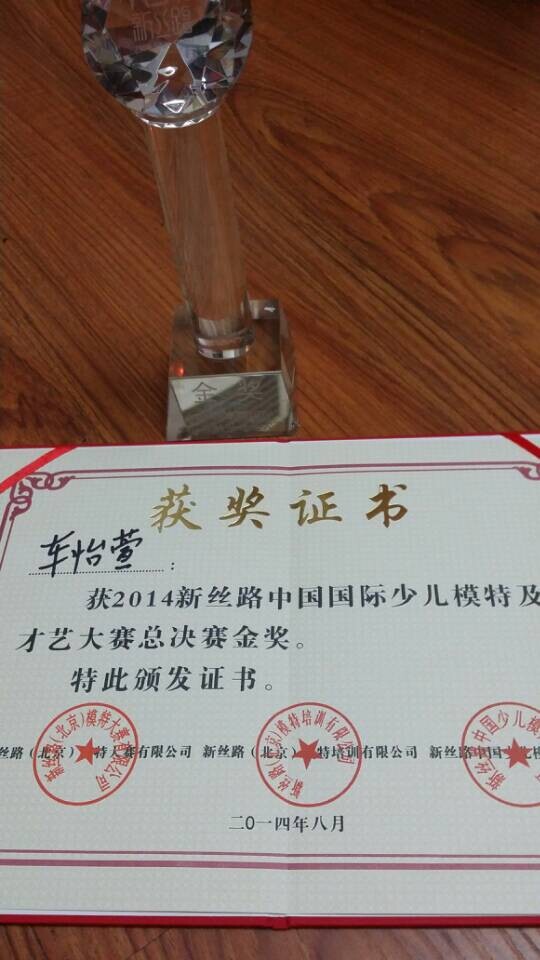 新丝路
金奖
获奖证书
车怡萱:
获2014新丝路中国国际少儿模特及
才艺大赛总决赛金奖。
特此颁发证书。
新丝路(北京)模特大赛有限公司
新丝路(北京)模特培训有限公司
新丝路中国少儿模
丝路(北京)特大赛有限公司 新丝路(北京)特培训有限公司 新丝路中国少儿模
二〇一四年八月